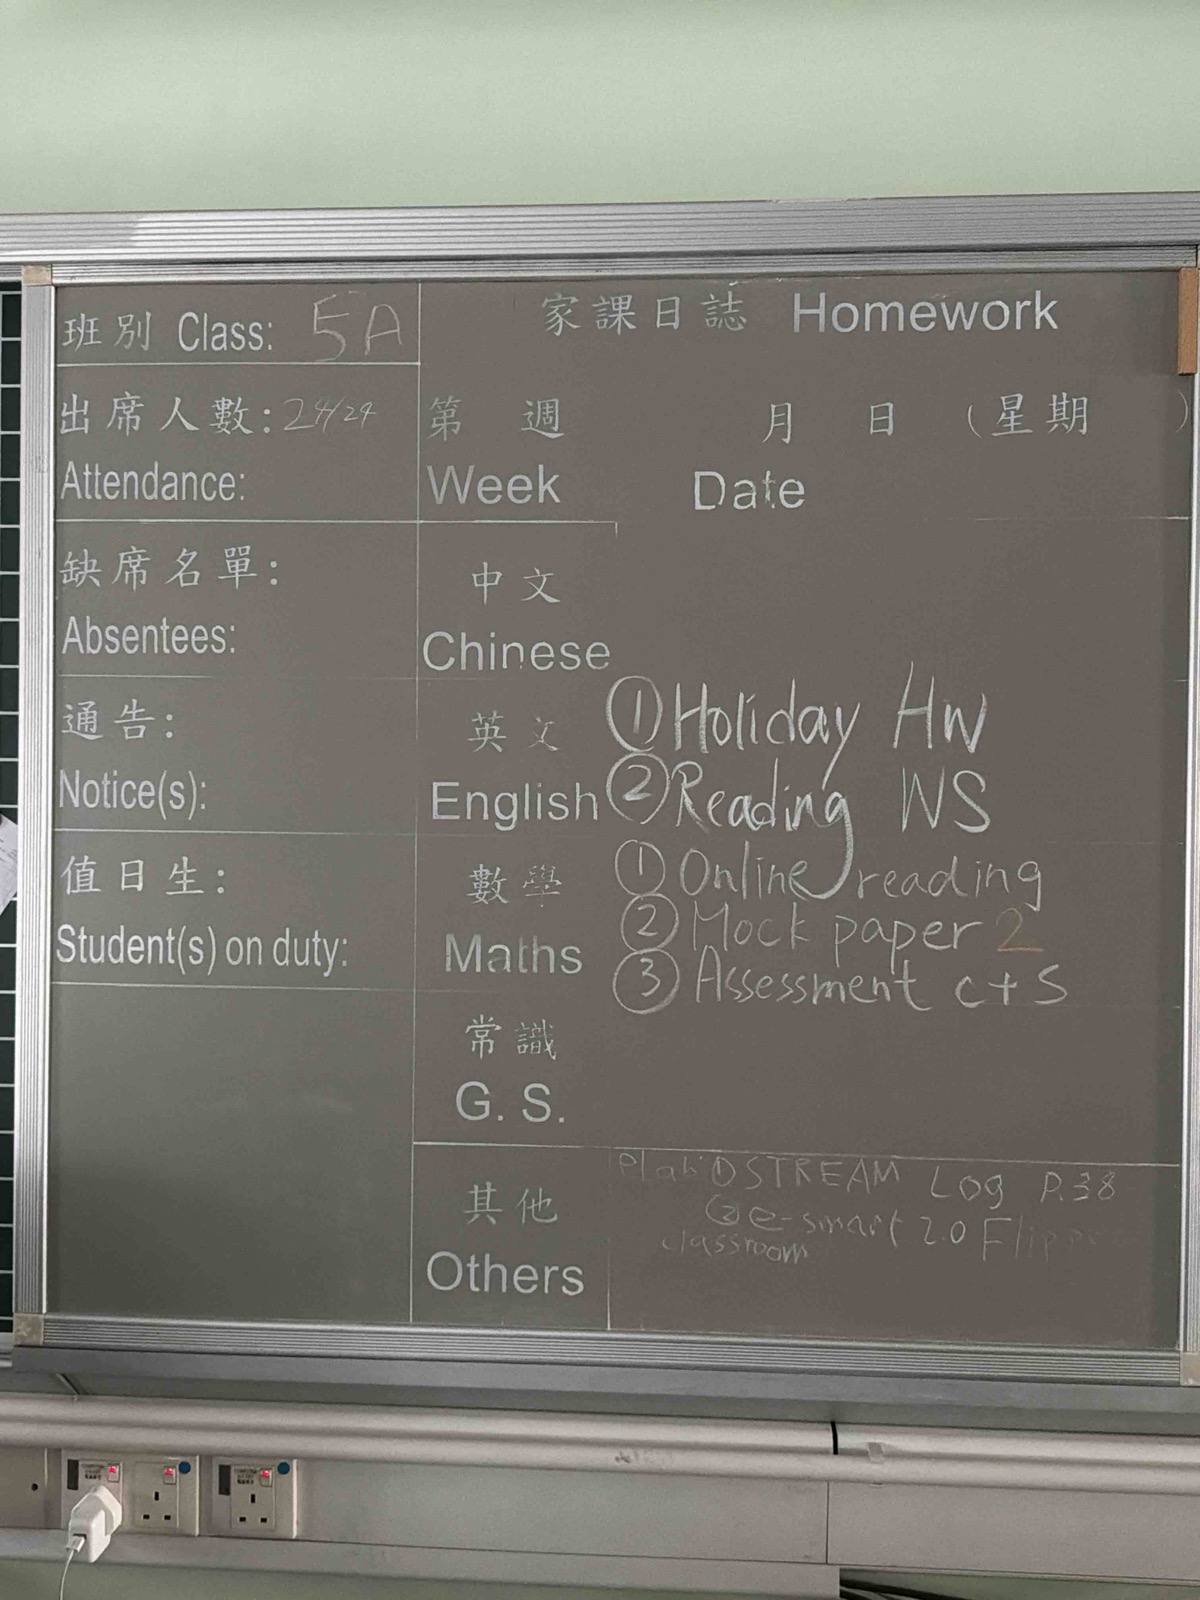 班別 Class: 5A
出席人數: 24/24
Attendance:
缺席名單:
Absentees:
通告:
Notice(s):
值日生:
Student(s) on duty:
家課日誌 Homework
第 週 月 日 (星期 )
Week Date
中文
Chinese
英文
English
① Holiday HW
② Reading WS
數學
Maths
① Online reading
② Mock paper 2
③ Assessment c+s
常識
G. S.
其他
Others
① STREAM Log P.38
② e-smart 2.0
classroom